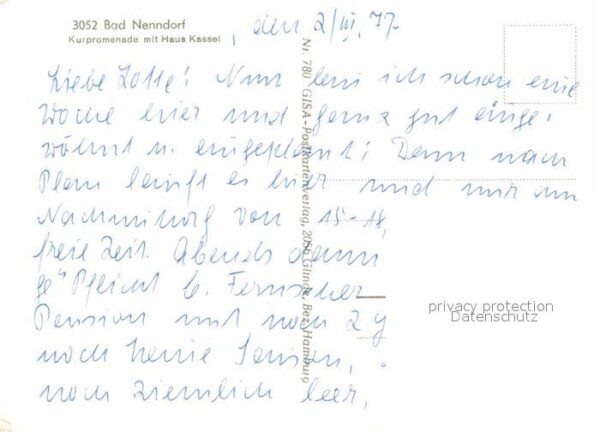 3052 Bad Nenndorf
Kurpromenade mit Haus Kassel
, den 2/III, 77
Liebe Lotte! Nun bin ich schon eine
Woche hier und ganz gut einge-
wöhnt u. eingeplant! Denn nach
Plan läuft es hier und nur am
Nachmittag von 15-18,
freie Zeit. Abends dann
Pflicht b. Fernseher
Pension mit noch 2
noch keine Saison,
noch ziemlich leer,
Nr. 780 GISA-Postkartenverlag, 2056 Glinde, Bez. Hamburg
privacy protection
Datenschutz